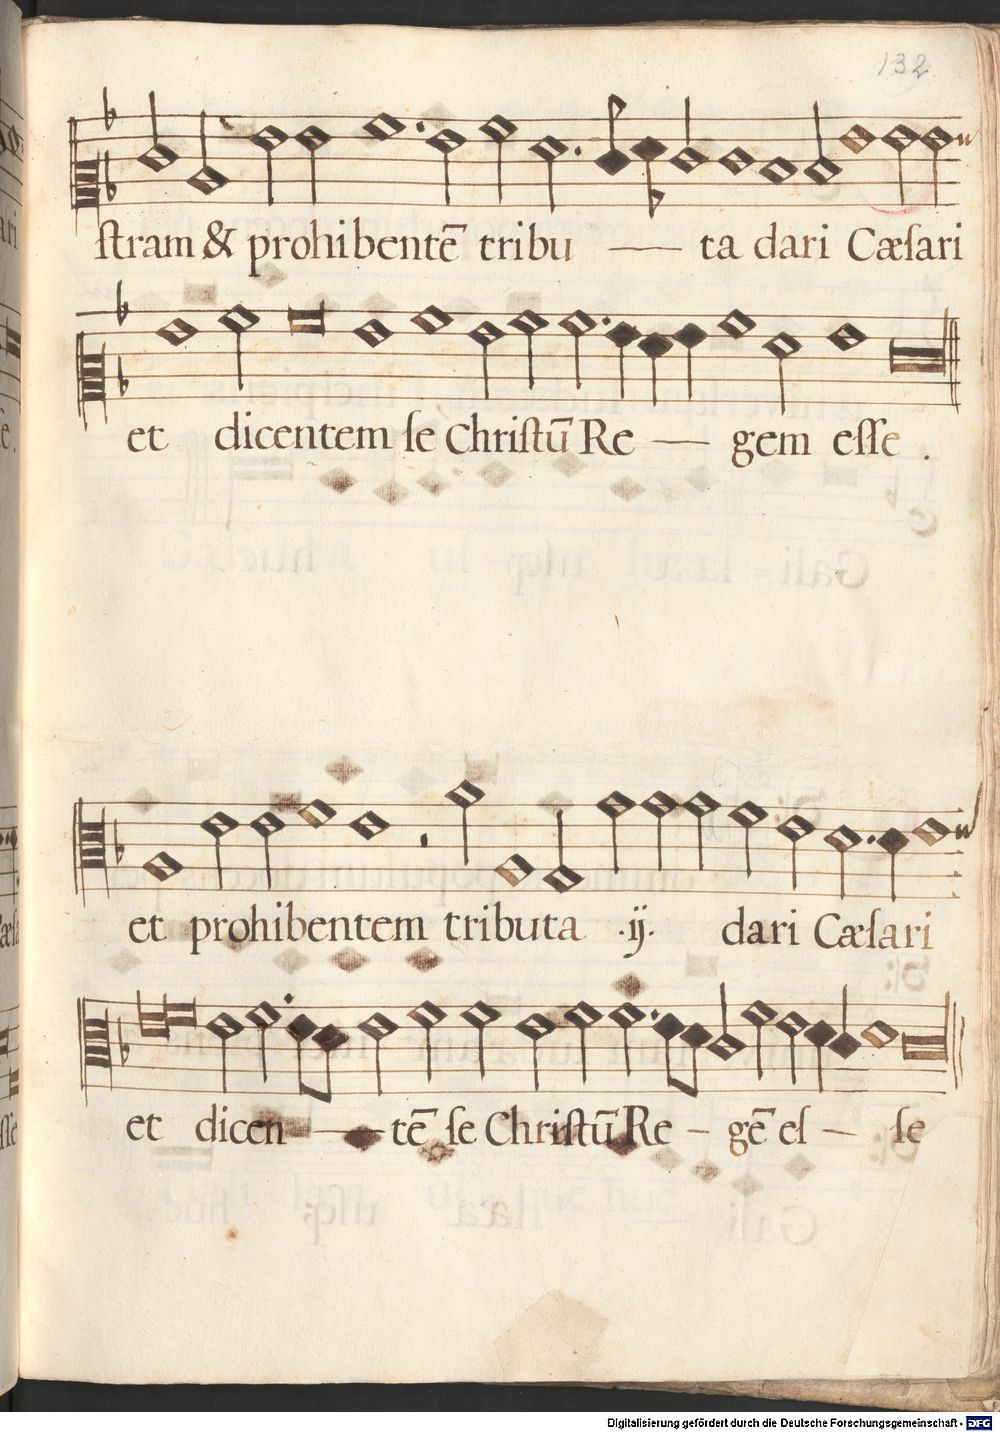 132
stram & prohibentē tribu — ta dari Cæsari
et dicentem se Christū Re — gem esse .
et prohibentem tributa ·ij· dari Cæsari
et dicen — tē se Christū Re – gē es – se
Digitalisierung gefördert durch die Deutsche Forschungsgemeinschaft - DFG